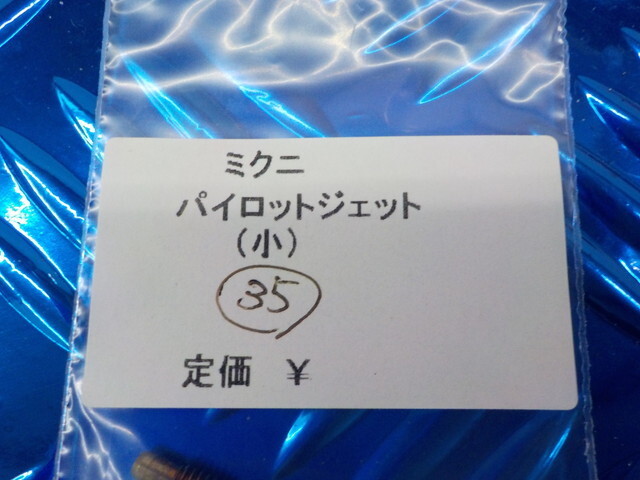 ミクニ
パイロットジェット
（小）
35
定価 ￥